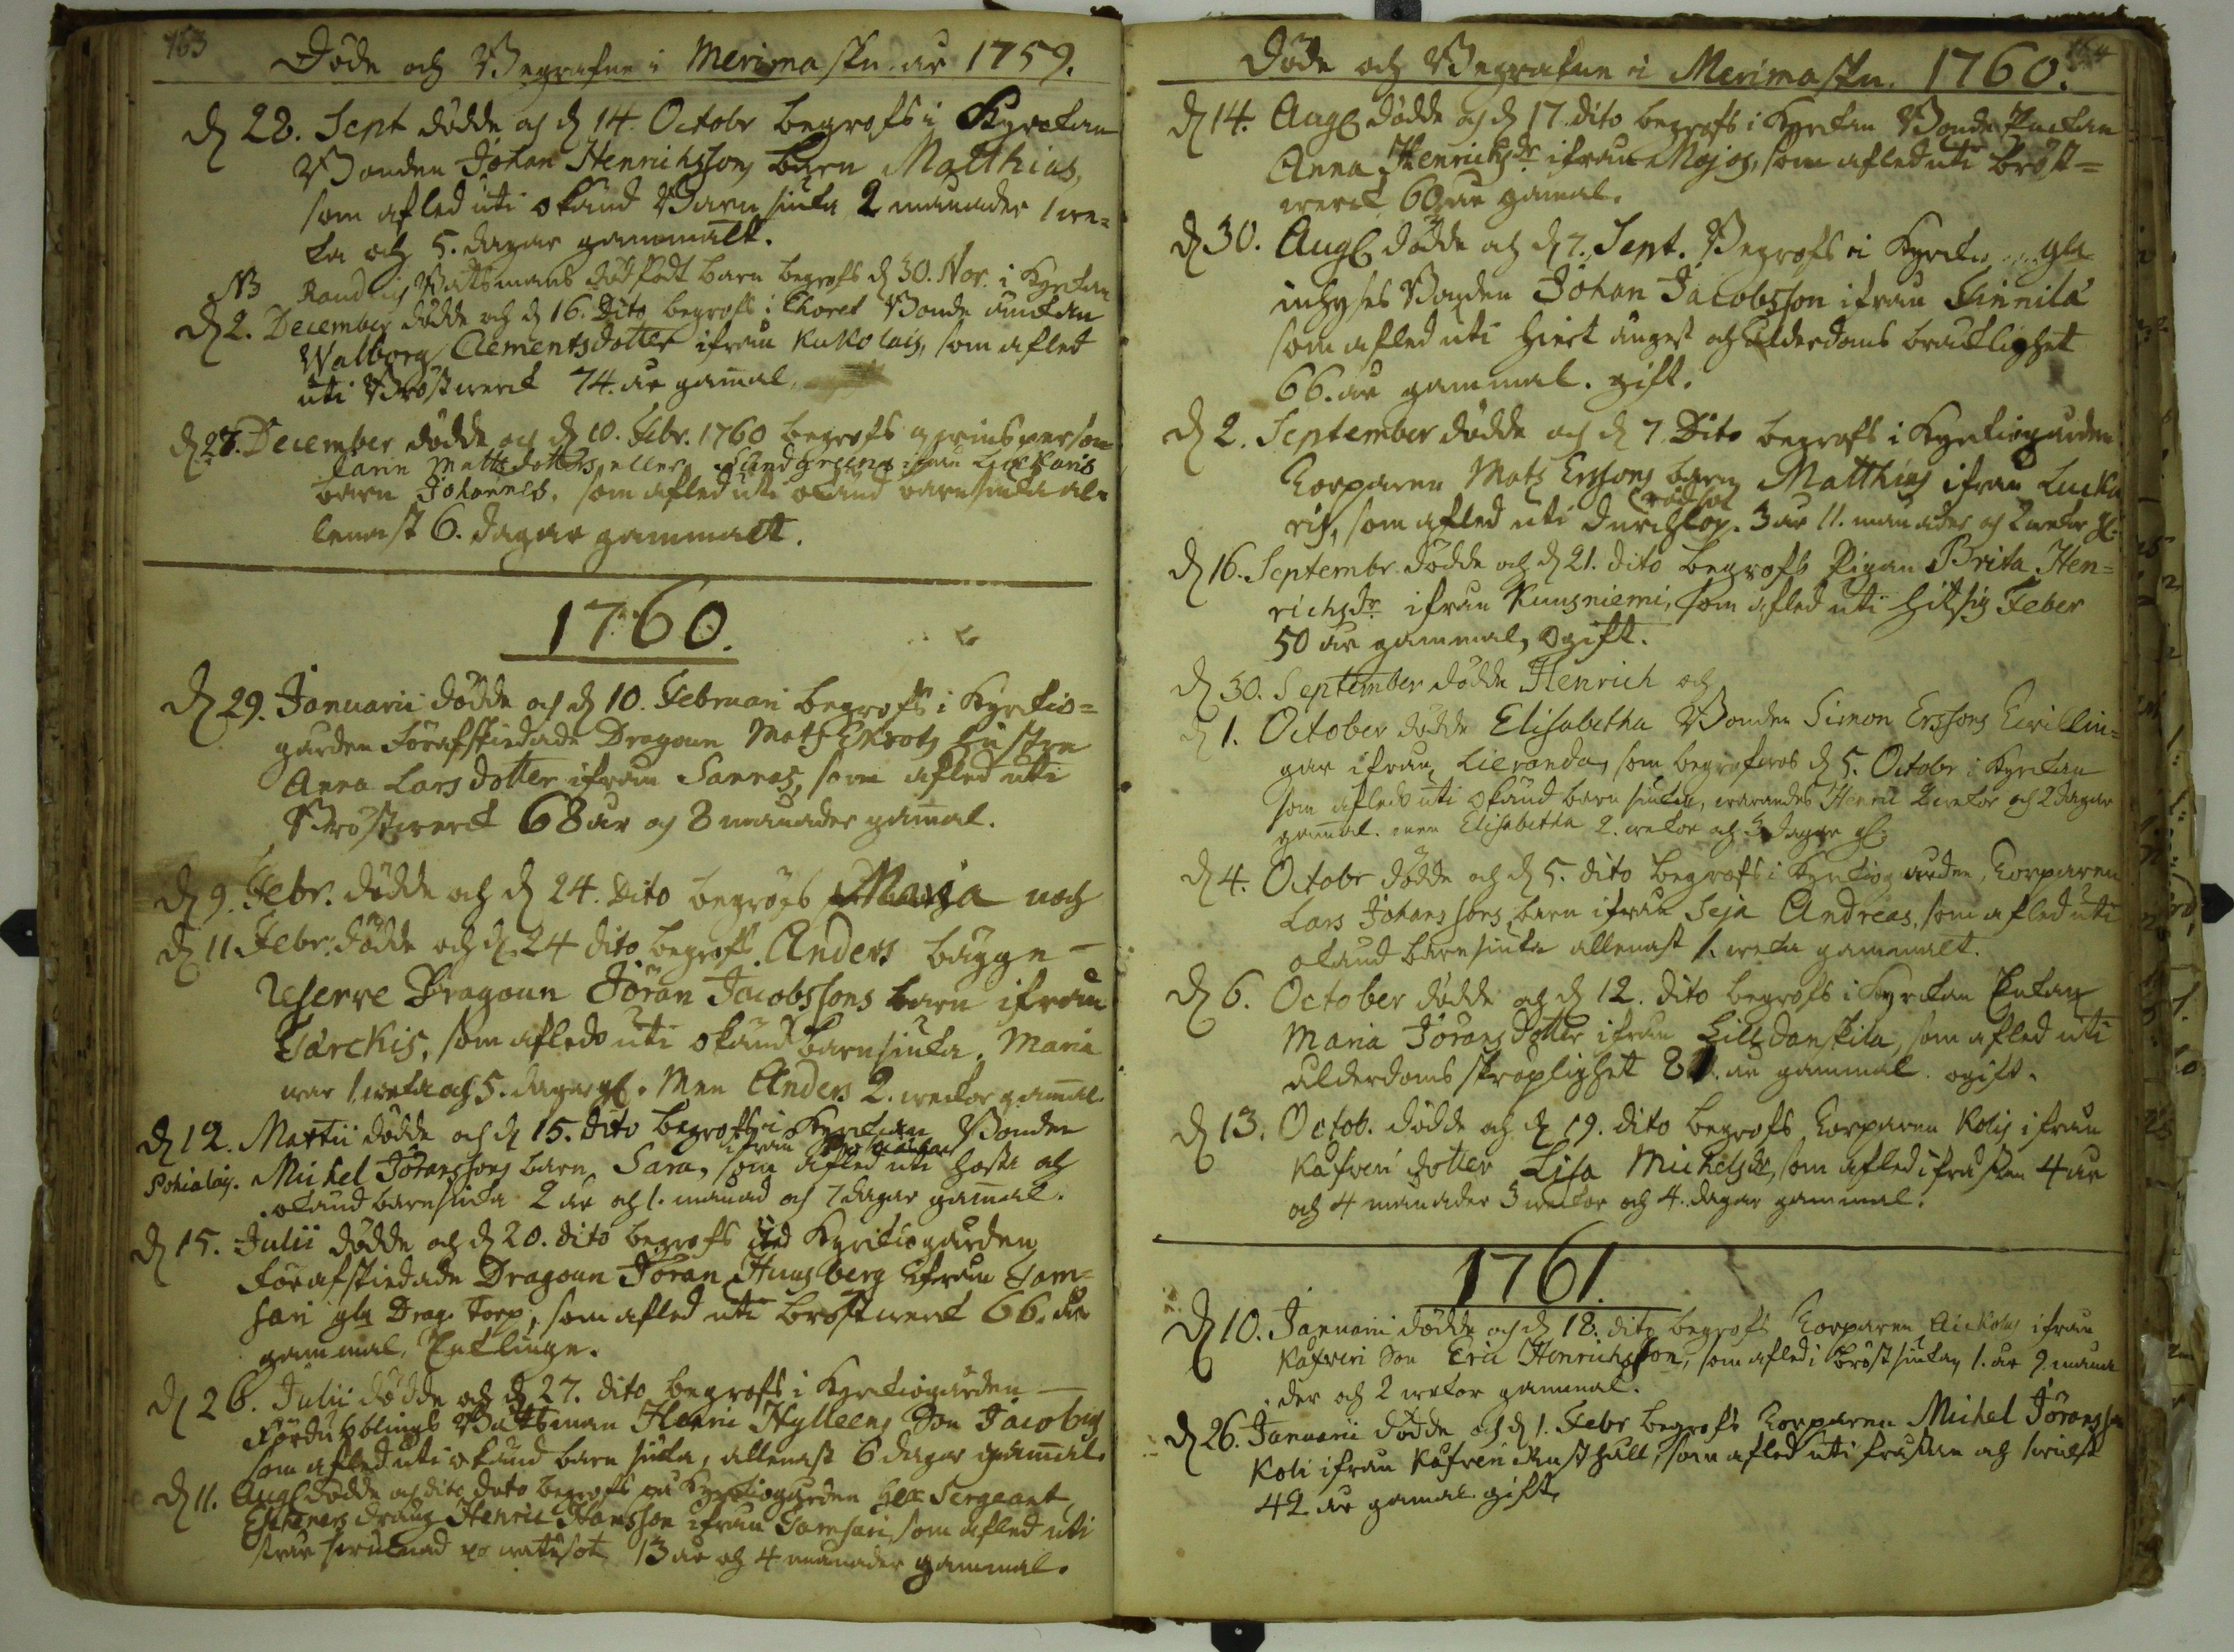 163
Döde och Begrafne i Merimasku år 1759.
d 28. Sept dödde och d 14. Octobr begrofs i Kyrckan
Bonden Johan Henrichssons barn Matthias,
som afled uti okänd Barnsiuka 2 månader 1 we=
ka och 5. dagar gammalt.
NB Båtsmans dödfödt barn begrofs d 30. Nov. i Kyrckan
d 2. December dödde och d 16. Dito begrofs i Choret Bonde änckan
Walborg Clementsdotter ifrån Kukolais, som afled
uti Bröstwerck 74. år gamal.
d 28. December dödde och d 10. Febr. 1760 begrofs
Karin Mattsdotters eller ifrån Luckaris
barn Johannes, som afled uti okänd barnsiuka al=
lenast 6. dagar gammalt.
1760.
d 29. Januarii dödde och d 10. Februari begrofs i Kyrckio=
gården Förafskiedade Dragoun Mats Ekrots hustru
Anna Larsdotter ifrån Sannas, som afled uti
Bröstwerck 68 år och 8 månader gamal.
d 9. Febr. dödde och d 24. Dito begrofs Maria och
d 11 Febr. dödde och d 24 dito begrofs Anders bägge
Reserve Dragoun Jöran Jacobssons barn ifrån
Järckis, som afledo uti okänd barnsiuka. Maria
war 1 weka och 5. dagar gl. Men Anders 2. weckor gamal.
d 12. Martii dödde och d 15. dito begrofs i Kyrckan Bonden
ifrån
Pohialais. Michel Jöranssons barn Sara, som afled uti hosta och
okänd barnsiuka 2 år och 1. månad och 7 dagar gamal.
d 15. Julii dödde och d 20. dito begrofs wed Kyrckiogården
Förafskiedade Dragoun Jöran Huusberg ifrån Tam=
sari gla Drag. torp, som afled uti bröstwerck 66. år
gammal, Enkling.
d 26. Julii dödde och d 27. dito begrofs i Kyrckiogården
Fördubblings Båtsman Henric Hylleens Son Jacobus
som afled uti okänd barnsiuka, allenast 6 dagar gammal.
d 11. Aug dödde och dito dato begrofs på Kyrckiogården Sergeant
dräng Henric Hansson ifrån Tamsari, som afled uti
13 år och 4 månader gammal.
164
Döde och Begrafne i Merimasku. 1760.
d 14. Aug dödde och d 17. dito begrofs i Kyrckan Bonde Enckan
Anna Henrichsdr ifrån Mojos, som afled uti bröst=
werck 60 år gamal.
d 30. Aug dödde och d 7. Sept. Begrofs i Kyrckan gla
inhyses Bonden Johan Jacobsson ifrån Finnilä
som afled uti Hiert ångest och Ålderdoms bräcklighet
66. år gammal. gift.
d 2. September dödde och d 7. Dito begrofs i Kyrckiogården
Torparen Mats Erssons barn Matthias ifrån Lucka
rödsot
ris, som afled uti Durchlop. 3 år 11. månader och 2 wekor gl.
d 16. Septembr. dödde och d 21. dito begrofs Pigan Brita Hen=
richsdr ifrån Kuusniemi, som afled uti Hitsig Feber
50 år gammal, Ogift.
d 30. September dödde Henrich och
d 1. October dödde Elisabetha Bonden Simon Erssons twillin=
gar ifrån Lieranda, som begrofwos d 5. Octobr i Kyrckan
som afledo uti Okänd barnsiuka, warandes Henric 2 wekor och 2 dagar
gamal. men Elisabetha 2. wekor och 3 dagar gl.
d 4. Octobr dödde och d 5. dito begrofs i Kyrckiogården, Torparen
Lars Johanssons barn ifrån Seja Andreas, som afled uti
okänd barnsiuka allenast 1. weka gammalt.
d 6. October dödde och d 12. dito begrofs i Kyrckan Enkan
Maria Jöransdotter ifrån Lilldanskila, som afled uti
ålderdoms skröplighet 81. år gammal. ogift.
d 13. Octob. dödde och d 19. dito begrofs Torparen Kolis ifrån
Kåfweri dotter Lisa Michelsdr, som afled i frässan 4 år
och 4 månader 3 weckor och 4. dagar gammal.
1761.
d 10. Januarii dödde och d 18. dito begrofs Torparen ifrån
Kåfweri Son Eric Henrichsson, som afled i bröstsiuka 1. år 9 måna
der och 2 wekor gammal.
d 26. Januarii dödde och d 1. Febr begrofs Torparen Michel Jöransson
Koli ifrån Kåfweri Rusthåll, som afled uti frässan och
42 år gamal gift.